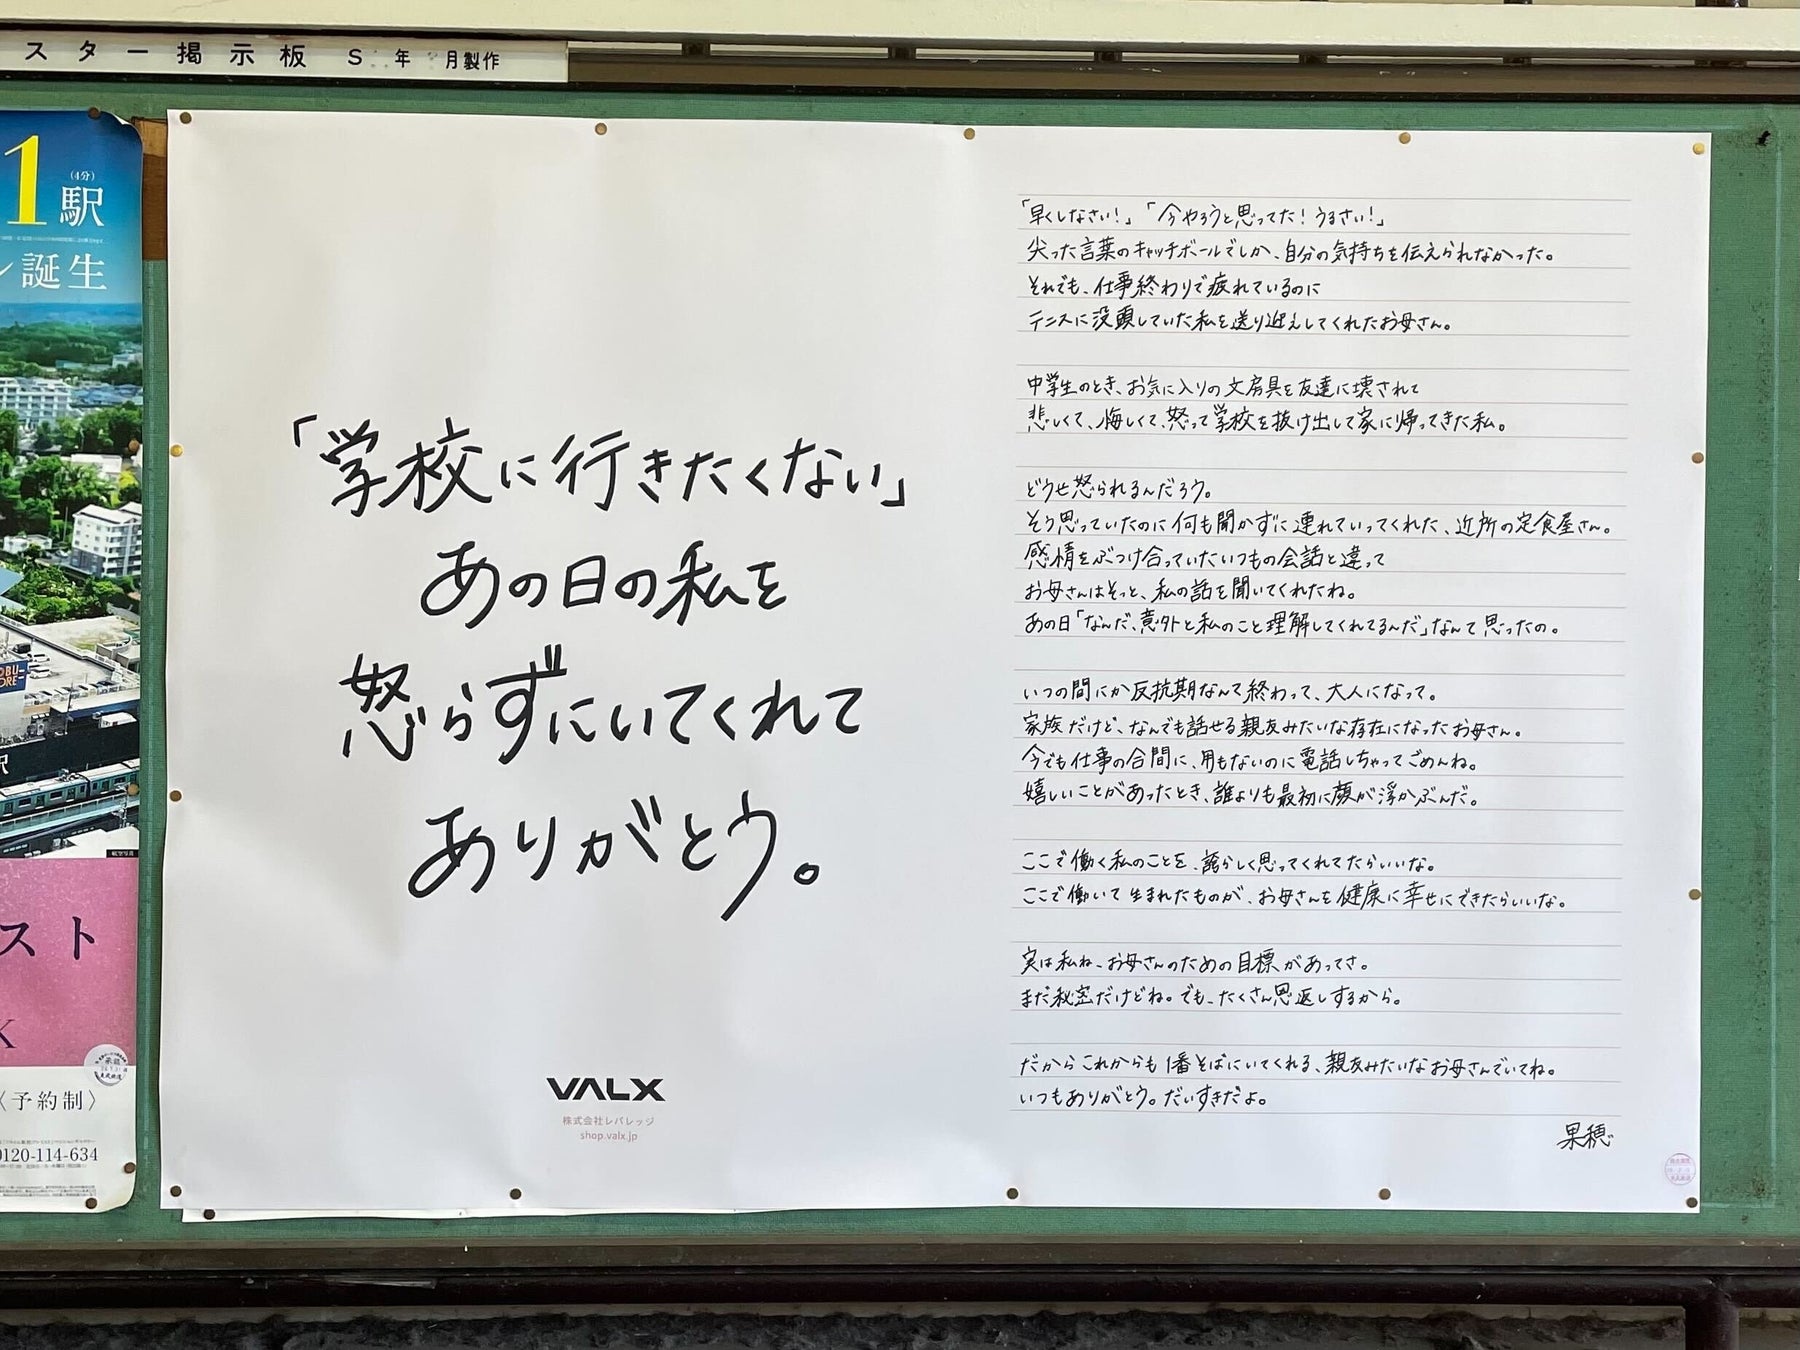 スター掲示板 S 年 月製作
1駅
(4分)
ン誕生
スト
〈予約制〉
0120-114-634
「学校に行きたくない」
あの日の私を
怒らずにいてくれて
ありがとう。
VALX
株式会社レバレッジ
shop.valx.jp
「早くしなさい!」「今やろうと思ってた!うるさい!」
尖った言葉のキャッチボールでしか、自分の気持ちを伝えられなかった。
それでも、仕事終わりで疲れているのに
テニスに没頭していた私を送り迎えしてくれたお母さん。
中学生のとき、お気に入りの文房具を友達に壊されて
悲しくて、悔しくて、怒って学校を抜け出して家に帰ってきた私。
どうせ怒られるんだろう。
そう思っていたのに何も聞かずに連れていってくれた、近所の定食屋さん。
感情をぶつけ合っていたいつもの会話と違って
お母さんはそっと、私の話を聞いてくれたね。
あの日「なんだ、意外と私のこと理解してくれてるんだ」なんて思ったの。
いつの間にか反抗期なんて終わって、大人になって。
家族だけど、なんでも話せる親友みたいな存在になったお母さん。
今でも仕事の合間に、用もないのに電話しちゃってごめんね。
嬉しいことがあったとき、誰よりも最初に顔が浮かぶんだ。
ここで働く私のことを、誇らしく思ってくれてたらいいな。
ここで働いて生まれたものが、お母さんを健康に幸せにできたらいいな。
実は私ね、お母さんのための目標があってさ。
まだ秘密だけどね。でも、たくさん恩返しするから。
だからこれからも1番そばにいてくれる、親友みたいなお母さんでいてね。
いつもありがとう。だいすきだよ。
果穂